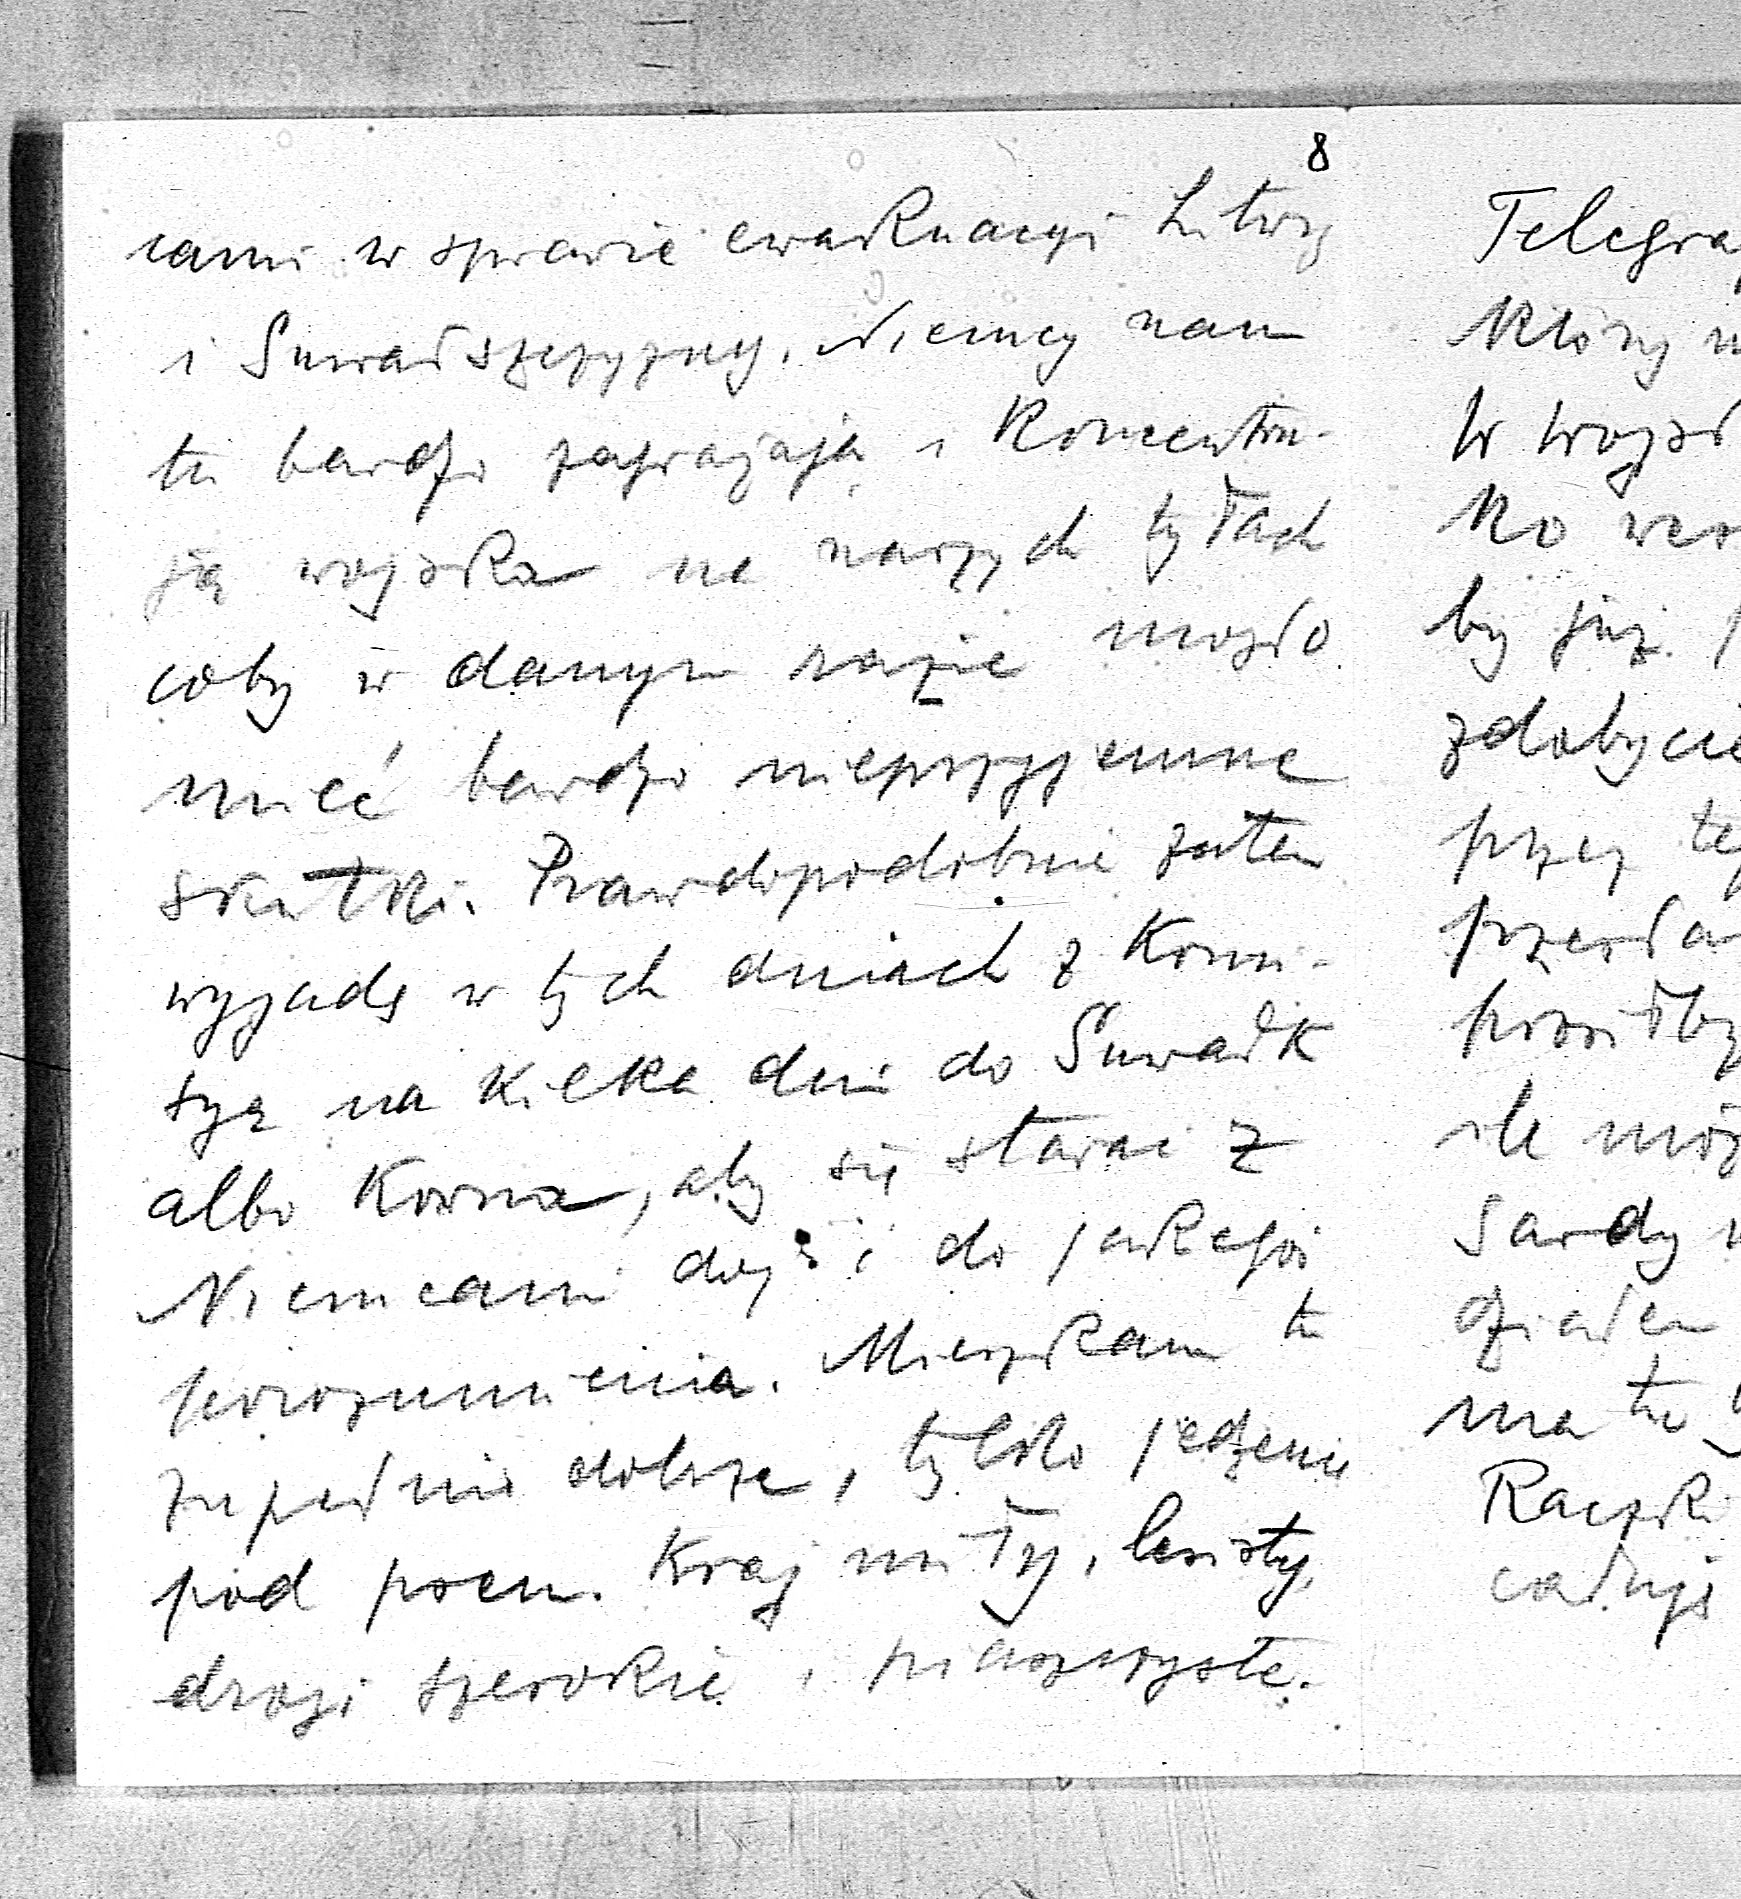 8
cami w sprawie ewakuacyi Litwy
i Suwalszczyzny. Niemcy nam
tu bardzo zagrażają i koncentru-
ją wojska na naszych tyłach
coby w danym razie mogło
mieć bardzo nieprzyjemne
skutki. Prawdopodobnie zatem
wyjadę w tych dniach z Komi-
syą na kilka dni do Suwałk
albo Kowna, aby się starać z
Niemcami dojść do jakiegoś
porozumienia. Mieszkam tu
zupełnie dobrze, tylko jedzenie
pod psem. Kraj miły, lesisty,
drogi szerokie i piaszczyste.
Telegra
który
w wojsk
ko
by już
zdobycie
przez
przesła
prosiłby
ile moż
Sardy

ma tu
Raczki
całuję